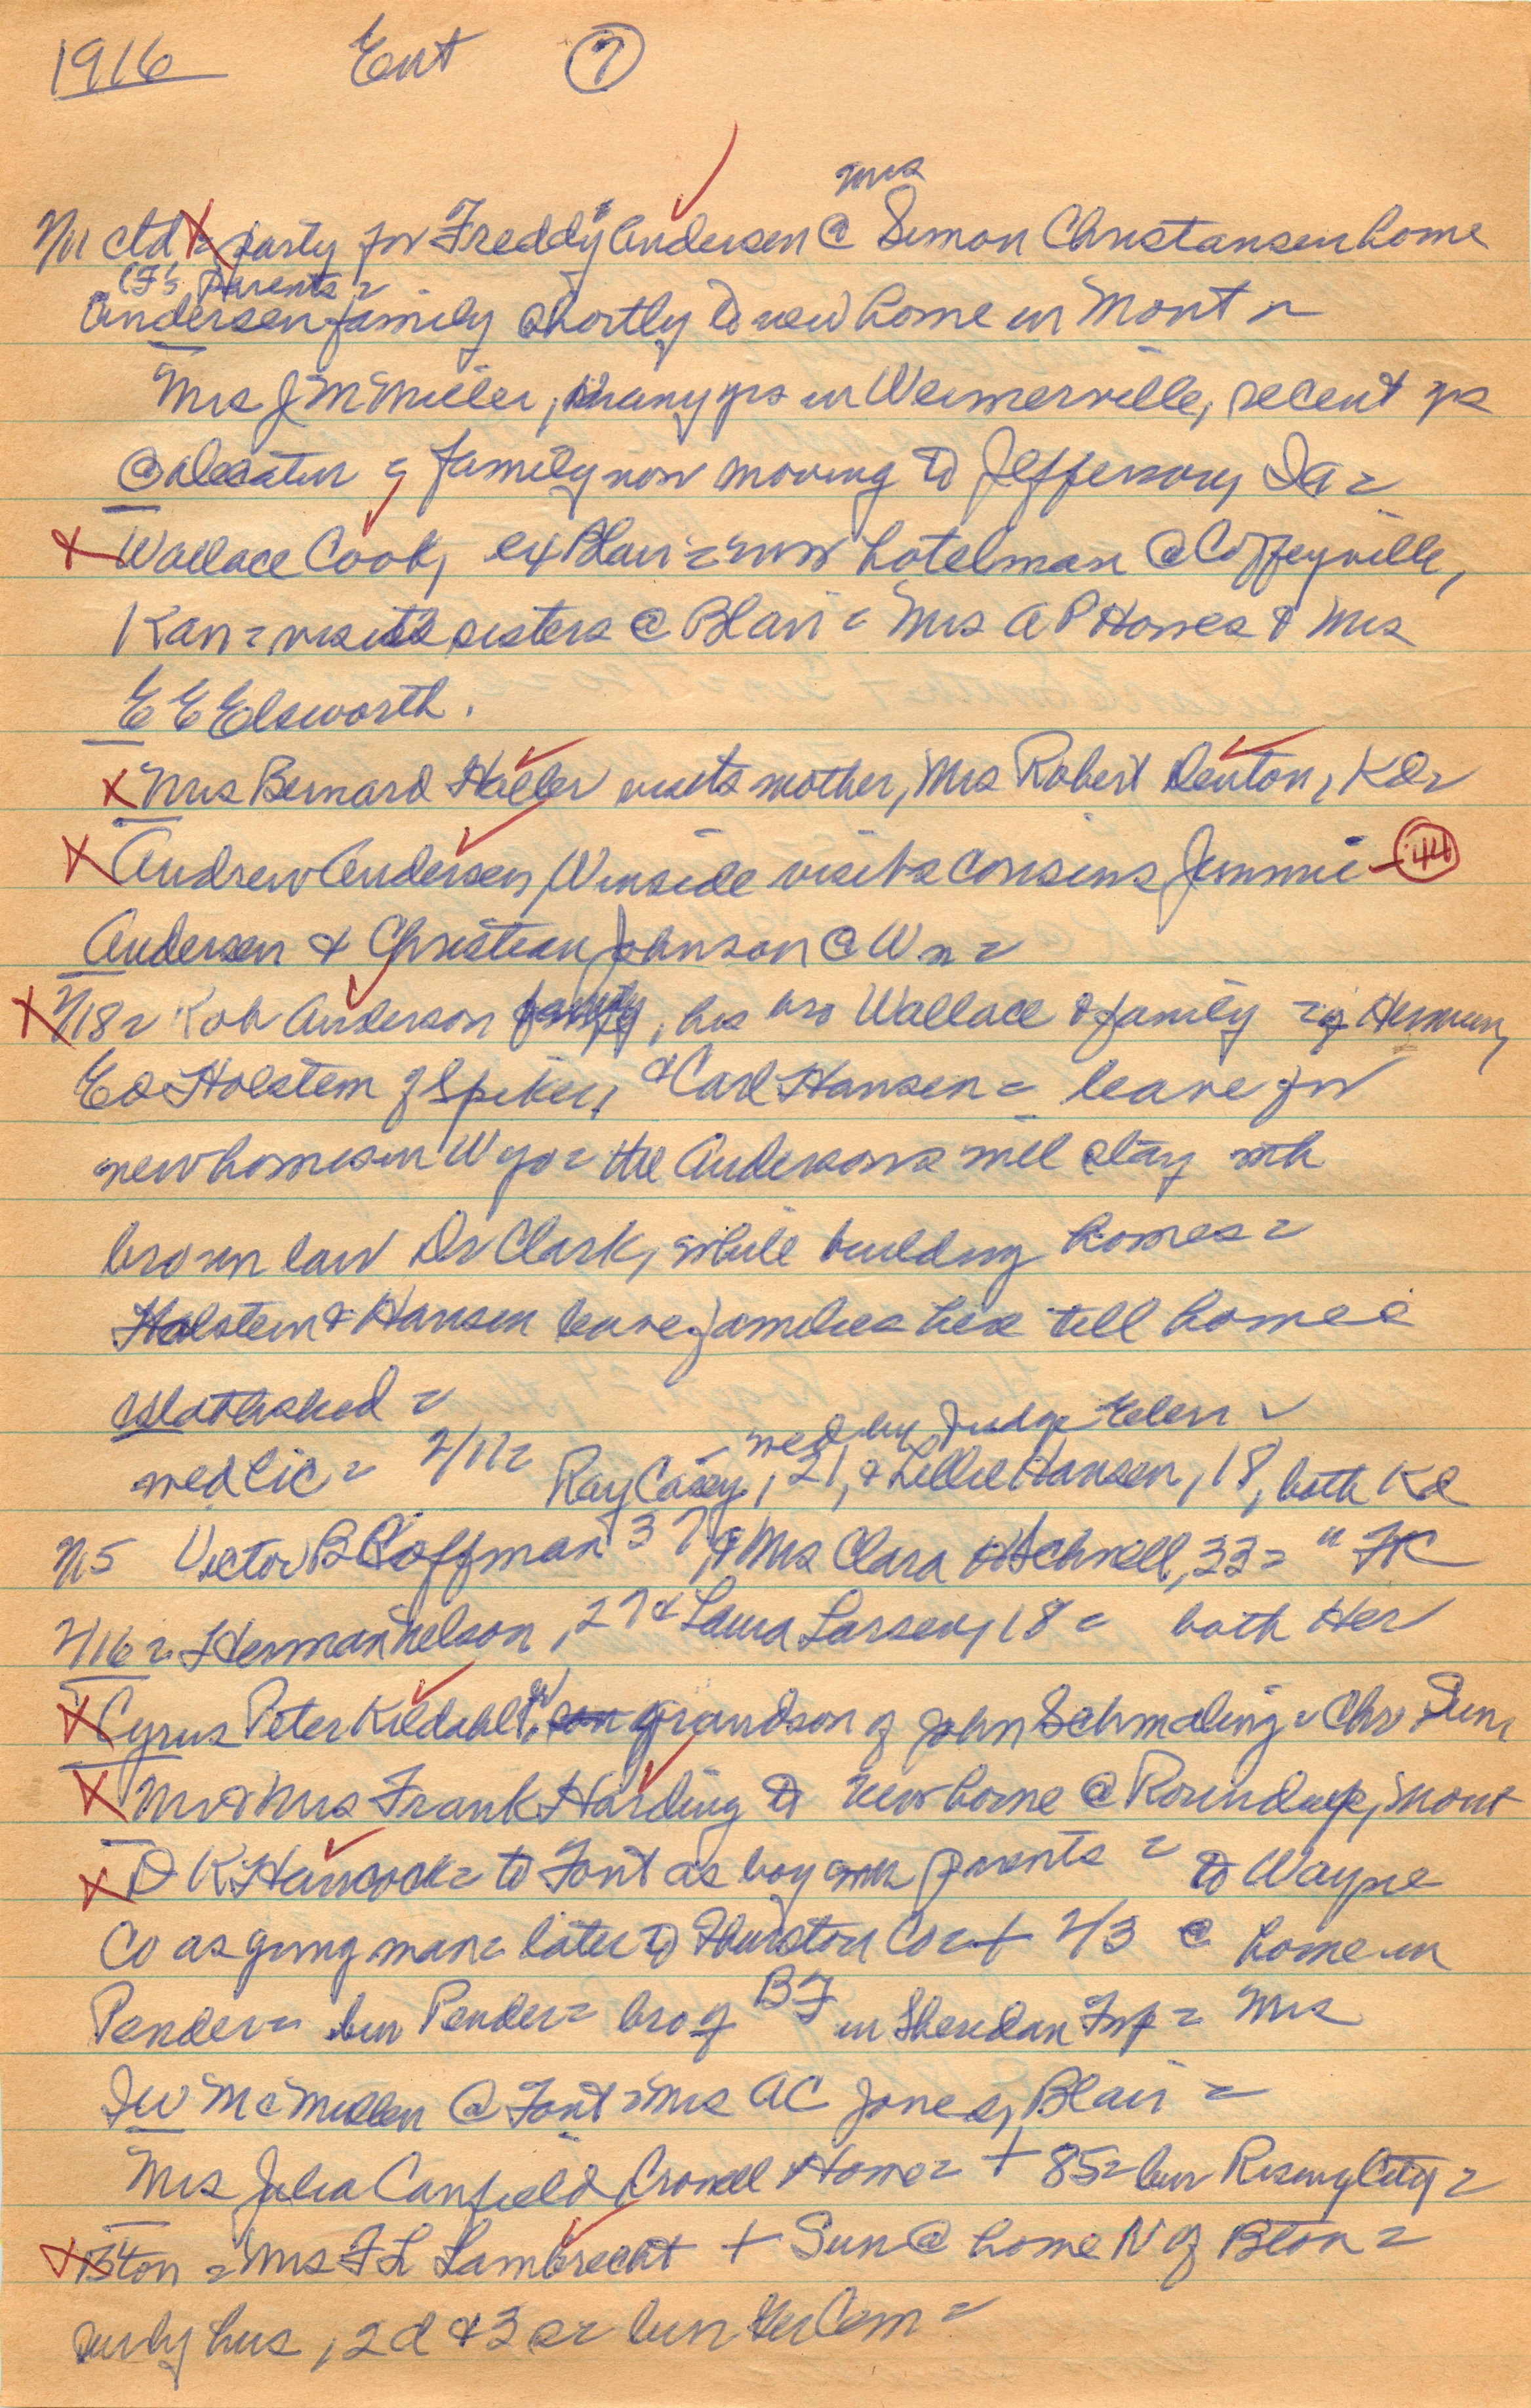 1916 Ent 7
mrs
2/11 ctd = party for Freddy Andersen @ Simon Christansen home
(F's Parents =
Andersen family shortly to new home in Mont =
Mrs J M Miller, many yrs in Weimerville, recent yrs
@ Decatur & family now moving to Jefferson, Ia =
Wallace Cook, ex Blair = now hotelman @ Coffeyville,
Kan = visits sisters @ Blair = Mrs A P Howes & Mrs
E E Elsworth.
Mrs Bernard Haller visits mother, Mrs Robert Denton, Kd =
Andrew Andersen, Winside visits cousins Jimmie 44
Andersen & Christian Johnson @ Wn =
2/18 = Rob Anderson family, his bro Wallace & family = of Herman,
Ed Holstein of Spiker, & Carl Hansen = leave for
new homes in Wyo = the Andersons will stay with
bro in law Dr Clark, while building homes =
Holstein & Hansen leave families here till homes
established =
wed by Judge Eller =
wed lic = 2/11 = Ray Casey, 21, & Lillie Hansen, 18, both Kd
2/15 Victor B Hoffman 37, & Mrs Clara Schnell, 33 = " FK
2/16 = Herman Nelson, 27 & Laura Larsen, 18 = both Her
Cyrus Peter Kildahl Jr, grandson of John Schmaling = Chr Sun,
Mr & Mrs Frank Harding to new home @ Roundup, Mont
D K Hancock = to Font as boy with parents = to Wayne
Co as young man = later to Thurston Co = + 2/3 @ home in
Pender = bur Pender = bro of BF in Sheridan Twp = Mrs
J W McMillen @ Font = Mrs A C Jones, Blair =
Mrs Julia Canfield Crowell Home = + 85 = bur Rising City =
B'ton = Mrs F L Lambrecht + Sun @ home N of Bton =
surv by hus, 2 d & 3 s = bur Ger Cem =